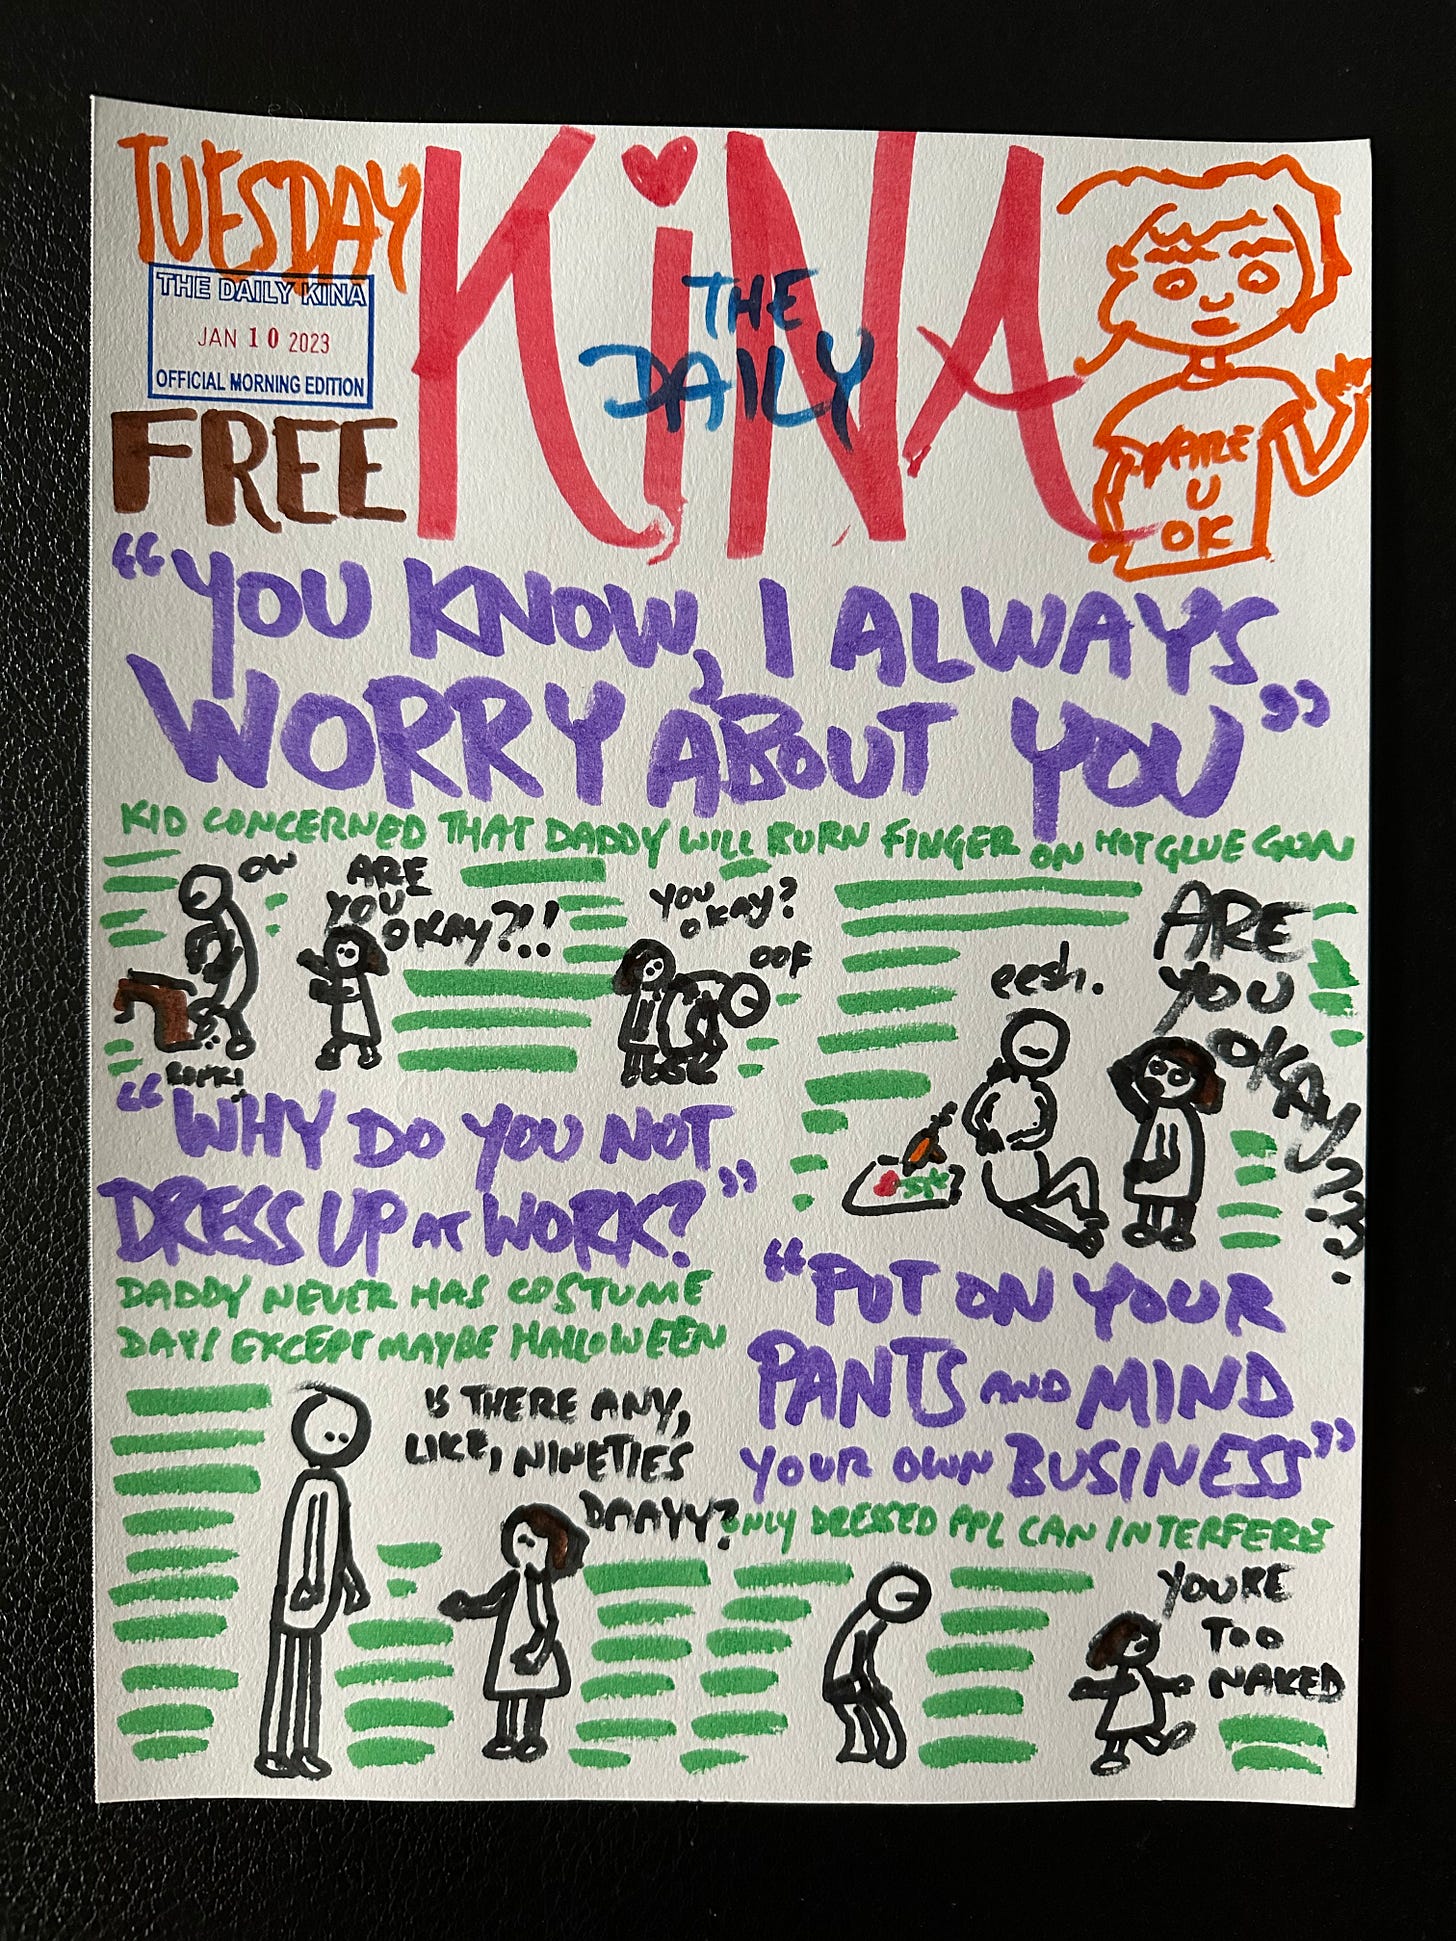 TUESDAY
THE DAILY KINA
JAN 10 2023
OFFICIAL MORNING EDITION
FREE
KiNA
THE
DAILY
ARE
U
OK
“YOU KNOW, I ALWAYS
WORRY ABOUT YOU”
KID CONCERNED THAT DADDY WILL BURN FINGER ON HOT GLUE GUN
OW
ARE
YOU
OKAY?!!
YOU
OKAY?
OOF
eesh.
ARE
YOU
OKAY???
“WHY DO YOU NOT
DRESS UP AT WORK?”
DADDY NEVER HAS COSTUME
DAY! EXCEPT MAYBE HALLOWEEN
IS THERE ANY,
LIKE, NINETIES
DAAYY?
“PUT ON YOUR
PANTS AND MIND
YOUR OWN BUSINESS”
ONLY DRESSED PPL CAN INTERFERE
YOU'RE
TOO
NAKED